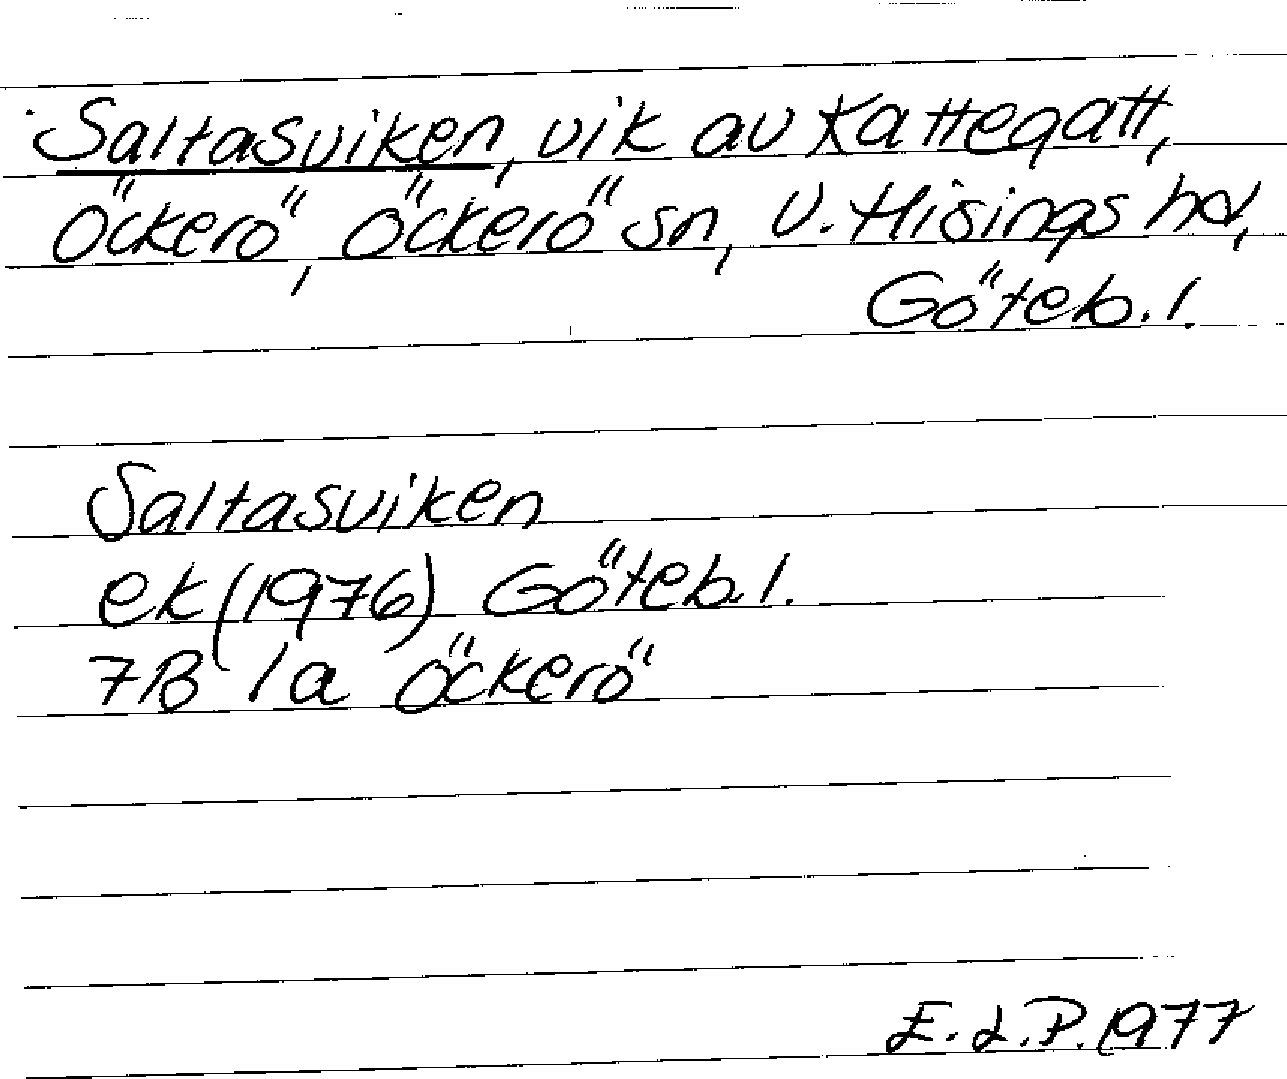 Saltasviken, vik av Kattegatt,
Öckerö, Öckerö sn, V. Hisings hd,
Göteb. l.
Saltasviken
ek (1976) Göteb. l.
7B 1a Öckerö
E.L.P. 1977